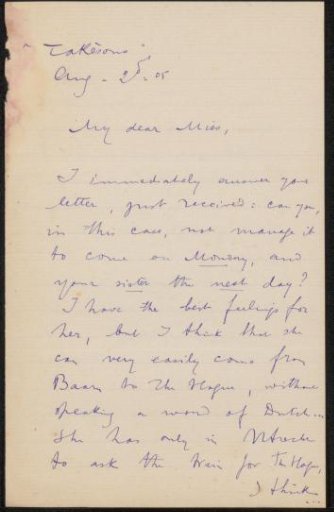 "Takěsono"
Aug - 25 - 05
My dear Mies,
I immediately answer your
letter, just received: can you,
in this case, not manage it
to come on Monday, and
your sister the next day?
I have the best feelings for
her, but I think that she
can very easily come from
Baarn to The Hague, without
speaking a word of Dutch...
She has only in Utrecht
to ask the train for The Hague,
I think...